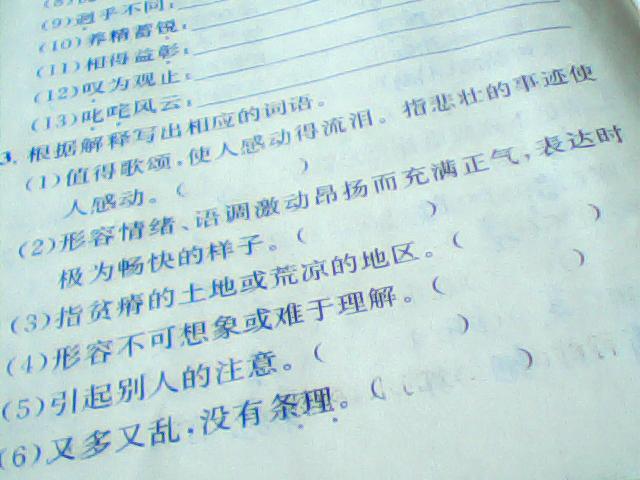 (9)迥乎不同:
(10)养精蓄锐:
(11)相得益彰:
(12)叹为观止:
(13)叱咤风云:
3. 根据解释写出相应的词语。
(1)值得歌颂,使人感动得流泪。指悲壮的事迹使
人感动。( )
(2)形容情绪、语调激动昂扬而充满正气,表达时
极为畅快的样子。( )
(3)指贫瘠的土地或荒凉的地区。( )
(4)形容不可想象或难于理解。( )
(5)引起别人的注意。( )
(6)又多又乱,没有条理。( )